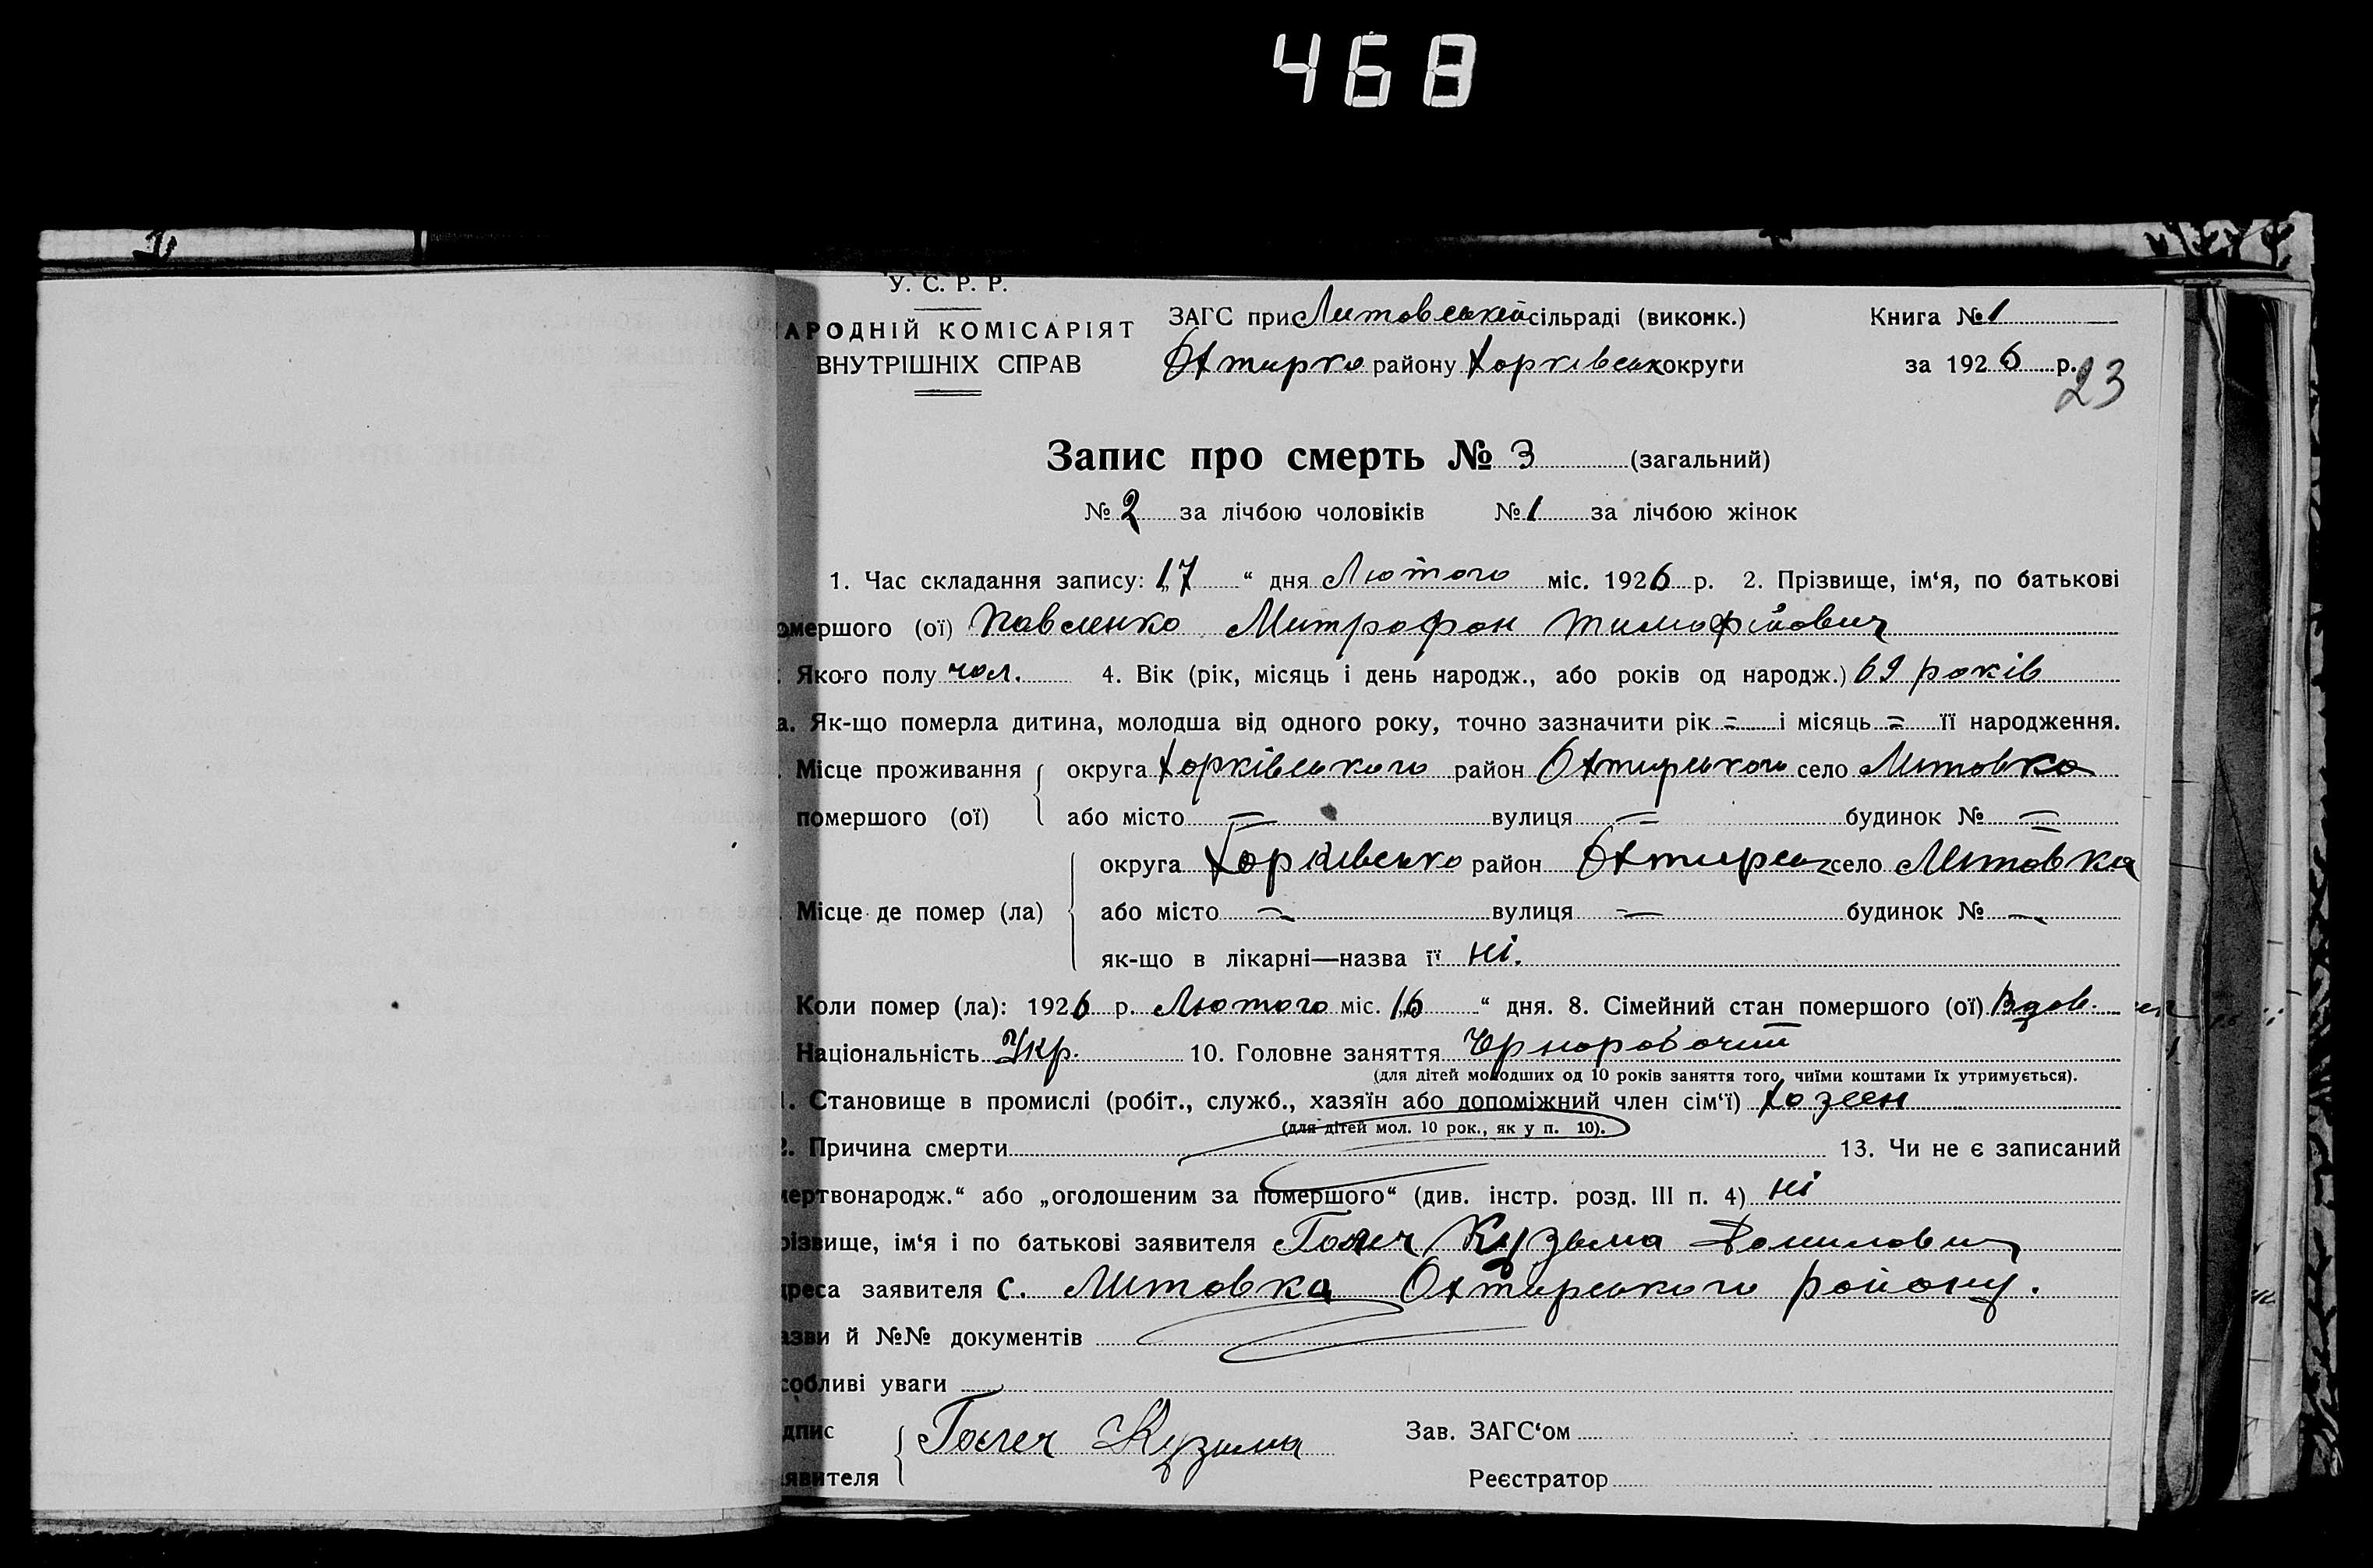 468
У. С. Р. Р.
АРОДНІЙ КОМІСАРІЯТ
ВНУТРІШНІХ СПРАВ
ЗАГС при Литовській сільраді (виконк.)
Охтирко району Харківськ округи
Книга № 1
за 1926 р.
23
Запис про смерть № 3 (загальний)
№ 2 за лічбою чоловіків № 1 за лічбою жінок
1. Час складання запису: „17 “ дня Лютого міс. 1926 р. 2. Прізвище, ім‘я, по батькові
омершого (ої) Павленко Митрофан Тимофійович
Якого полу чол. 4. Вік (рік, місяць і день народж., або років од народж.) 69 років
а. Як-що померла дитина, молодша від одного року, точно зазначити рік = і місяць = її народження.
Місце проживання округа Харківського район Охтирського село Литовка
помершого (ої) або місто = вулиця = будинок № =
округа Харківсько район Охтирськ село Литовка
Місце де помер (ла) або місто = вулиця = будинок № =
як-що в лікарні—назва її ні.
Коли помер (ла): 1926 р. Лютого міс. „16 “ дня. 8. Сімейний стан помершого (ої) Вдов.
Національність Укр. 10. Головне заняття Чорноробочий
(для дітей молодших од 10 років заняття того, чиїми коштами їх утримується).
1. Становище в промислі (робіт., служб., хазяїн або допоміжний член сім‘ї) Хазеен
(для дітей мол. 10 рок., як у п. 10).
2. Причина смерти 13. Чи не є записаний
мертвонародж.“ або „оголошеним за помершого“ (див. інстр. розд. III п. 4) ні
різвище, ім‘я і по батькові заявителя Кузьма Данилович
реса заявителя с. Литовка Охтирського району.
азви й №№ документів
собливі уваги
дпис Кузьма
явителя
Зав. ЗАГС‘ом
Реєстратор